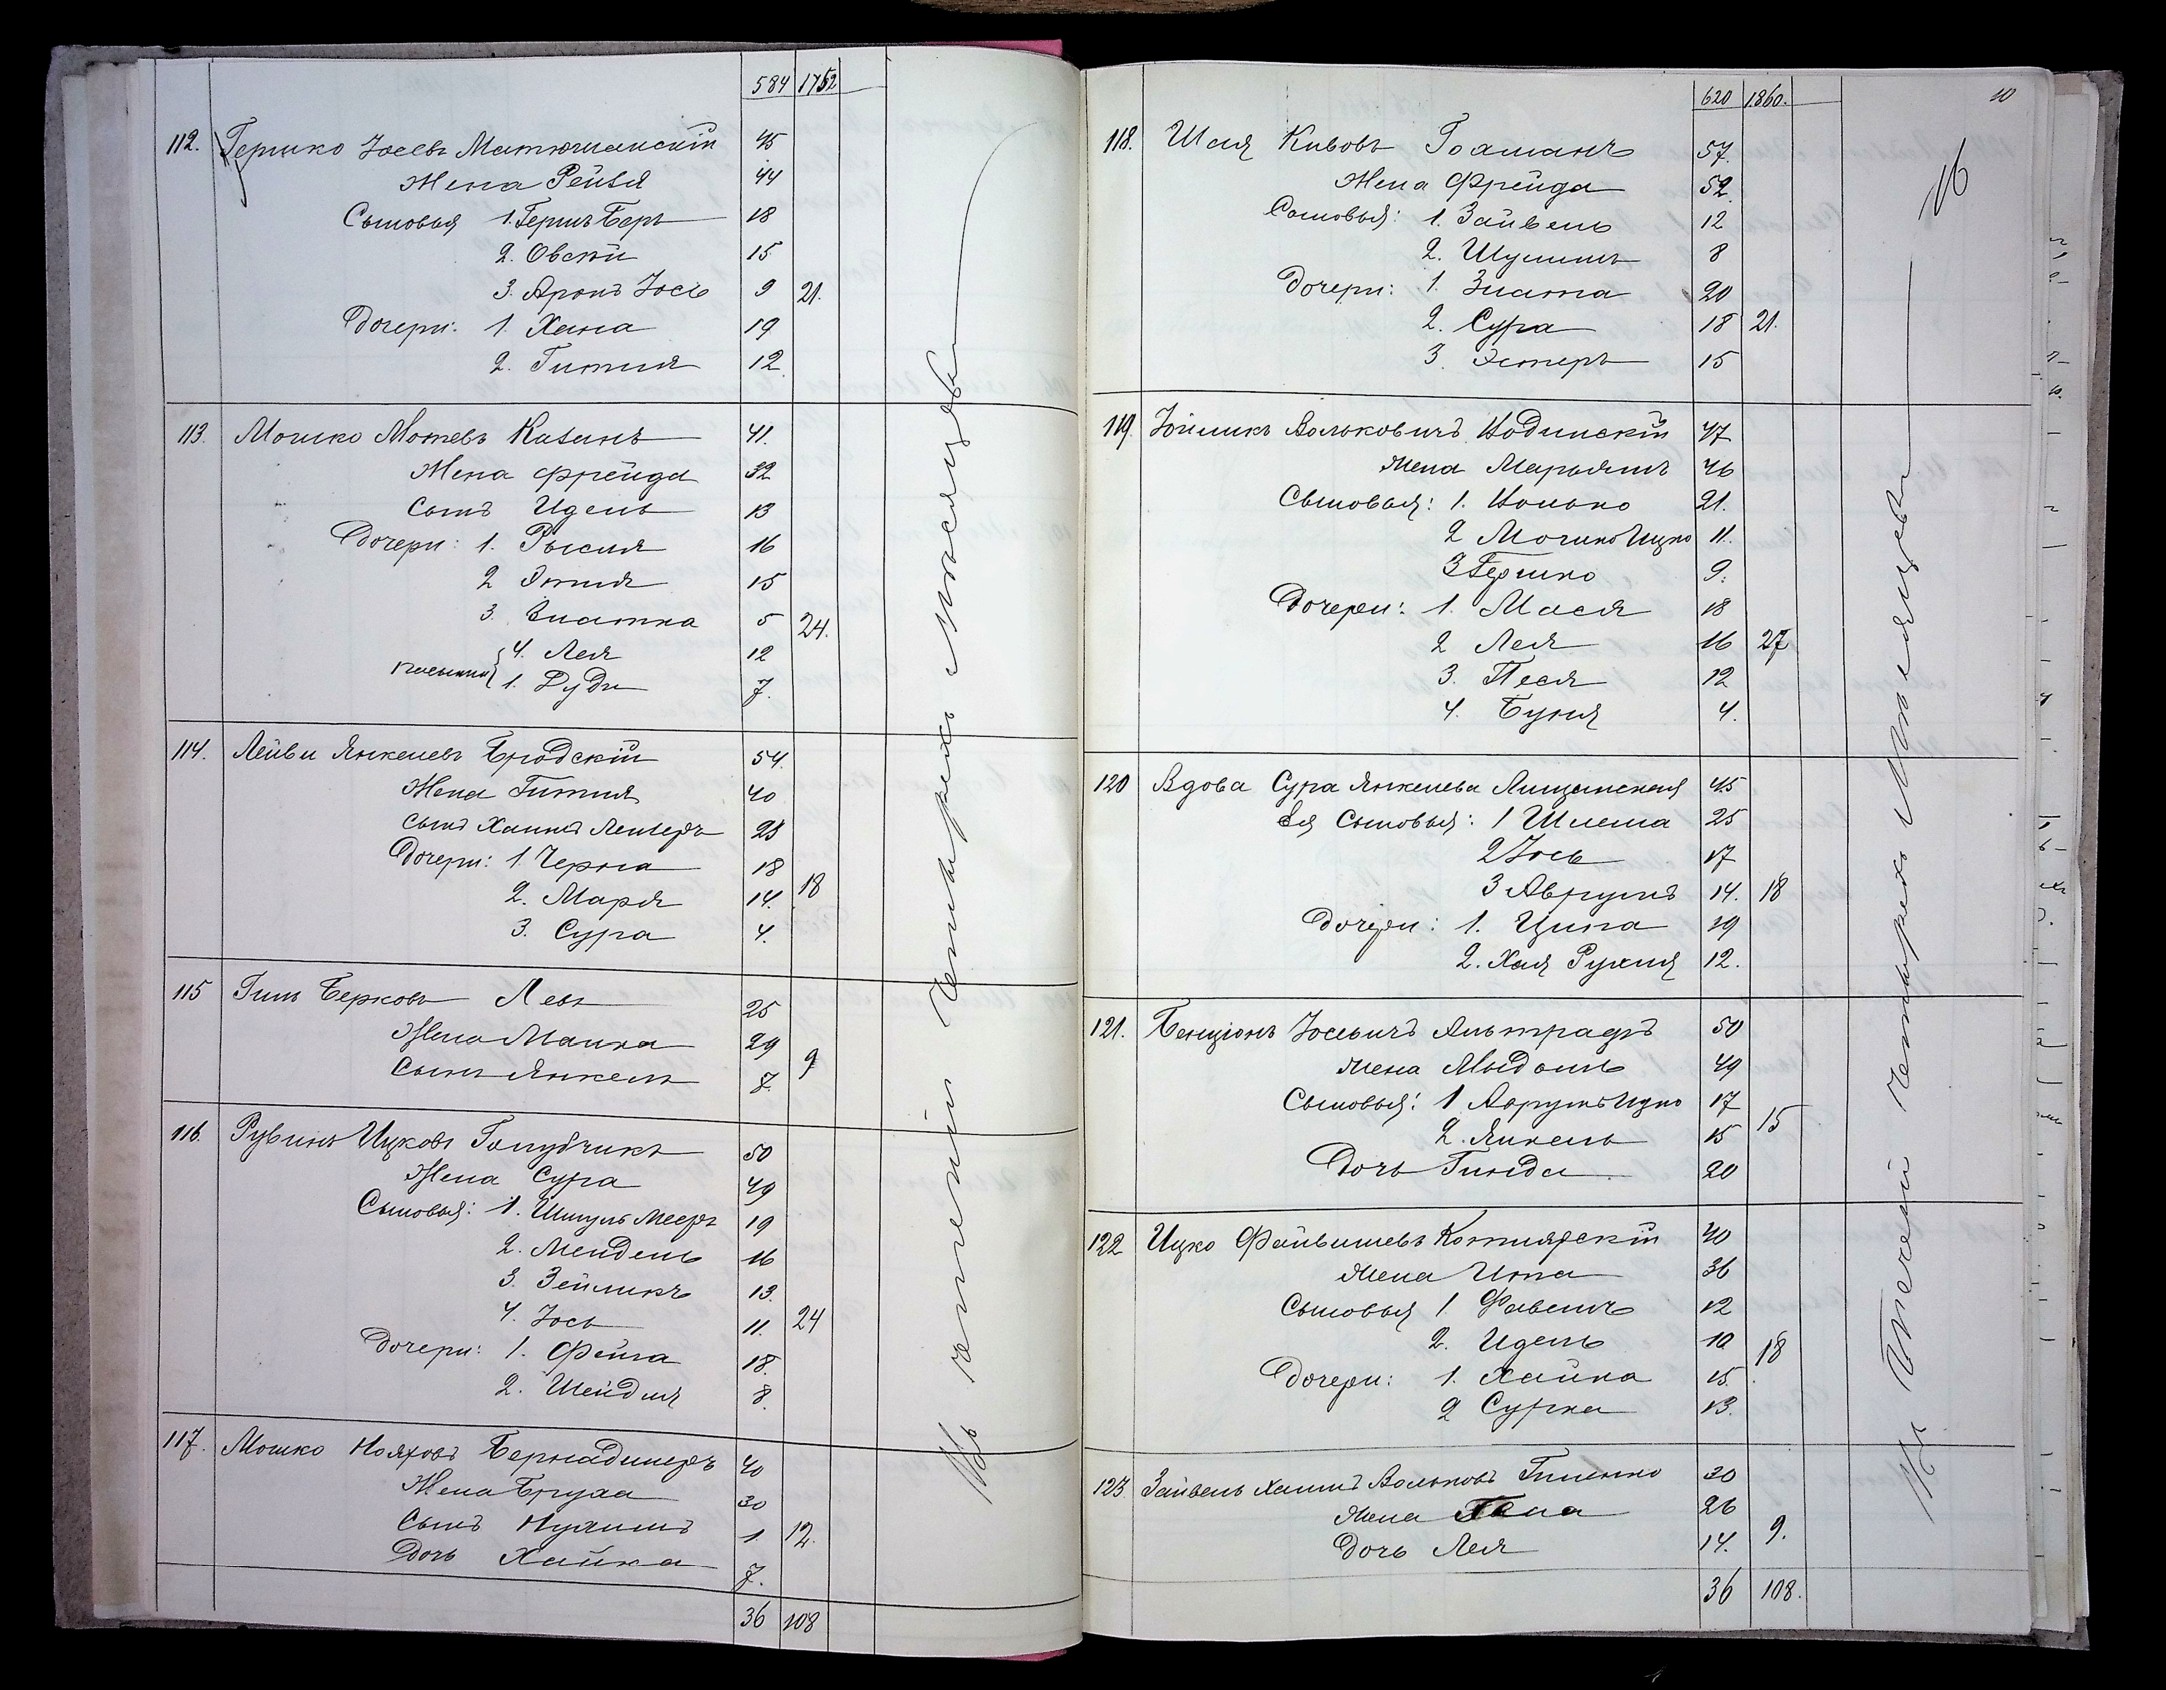 584 1752
112. Гершко Іосевъ Матюшанскій 45
Жена Рейзя 44
Сыновья 1. Гершъ Беръ 18
2. Овсѣй 15
3. Аронъ Іось 9 21.
Дочери: 1. Хана 19
2. Гитля 12
113. Мошко Мотевъ Казанъ 41.
Жена Фрейда 32
Сынъ Идель 13
Дочери: 1. Рысия 16
2 Этля 15
3. Златка 5 24.
4. Лея 12
1. Дуди 7.
114. Лейви Янкелевъ Бродскій 54.
Жена Гитля 40
Сынъ Хаимъ Лейзеръ 23
Дочери: 1. Черна 18
2. Маря 14. 18
3. Сура 4.
115 Гилъ Берковъ Левъ 25
Жена Малка 29 9
Сынъ Янкель 7.
116. Рувинъ Ицковъ Голубчикъ 50
Жена Сура 49
Сыновья: 1. Шмуль Мееръ 19
2. Мендель 16
3. Зейликъ 13.
4. Іось 11. 24
Дочери: 1. Фейга 18.
2. Шейдля 8.
117. Мошко Нояховъ Бернадинеръ 40
Жена Бруха 30
Сынъ Нухимъ 1. 12.
Дочь Хайка 7.
36 108
Въ теченіи четырехъ мѣсяцевъ
620 1860. 10
118. Шая Кивовъ Гохманъ 57.
Жена Фрейда 52.
Сыновья: 1. Зайвель 12
2. Шулимъ 8
Дочери: 1. Злата 20
2. Сура 18 21.
3. Эстеръ 15
119. Іойликъ Вольковичъ Водинскій 47
Жена Марьямъ 46
Сыновья: 1. Волько 21.
2 Мошко Ицко 11.
3 Гершко 9.
Дочери: 1. Мася 18
2 Лея 16 27
3. Песя 12
4. Буня 4.
120 Вдова Сура Янкелева Лищинская 45
Ея Сыновья: 1 Шлема 25
2 Іось 17
3 Аврумъ 14. 18
Дочери: 1. Ципа 19
2. Хая Рухля 12.
121. Бенціонъ Іосевичъ Альтрадъ 50
Жена Мыдаль 49
Сыновья: 1 Аврумъ Ицко 17 15
2. Янкель 15
Дочь Гинда 20
122 Ицко Файвишевъ Котлярскій 40
Жена Ита 36
Сыновья 1 Фавель 12
2. Идель 10 18
Дочери: 1. Хайка 15.
2 Сурка 13.
123 Зайвель Хаимъ Вольковъ Гиленко 30
Жена 26
Дочь Лея 14. 9.
36 108.
Въ теченіи четырехъ мѣсяцевъ 16